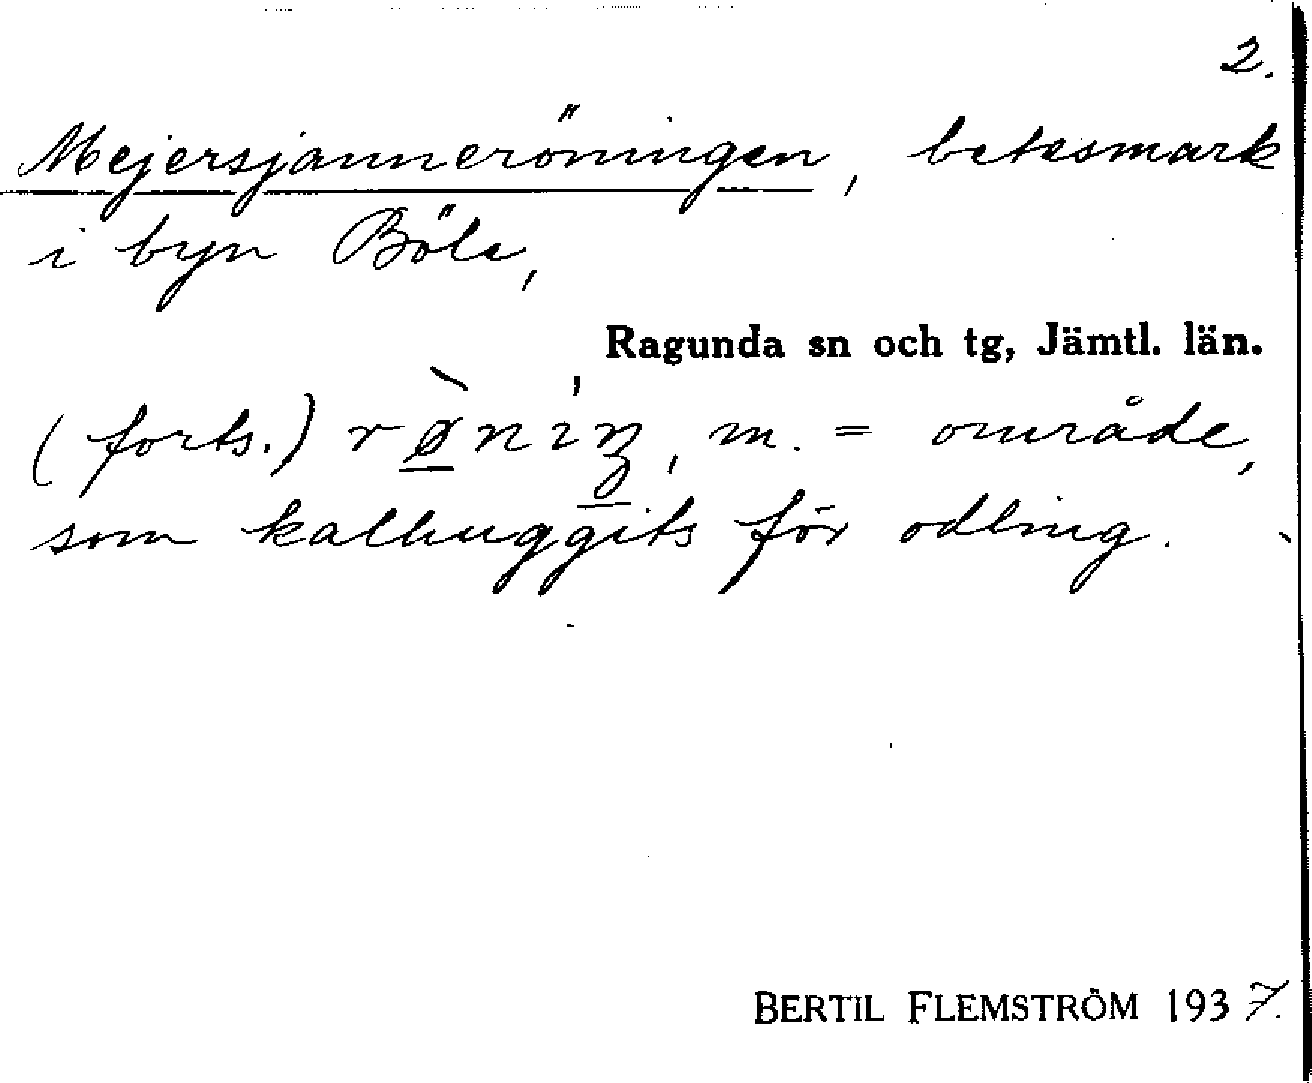 2.
Mejersjanneröningen, betesmark
i byn Böle,
Ragunda sn och tg, Jämtl. län.
(forts.) rø̠̀niŋ̠, m. = område,
som kalhuggits för odling.
BERTIL FLEMSTRÖM 1937.